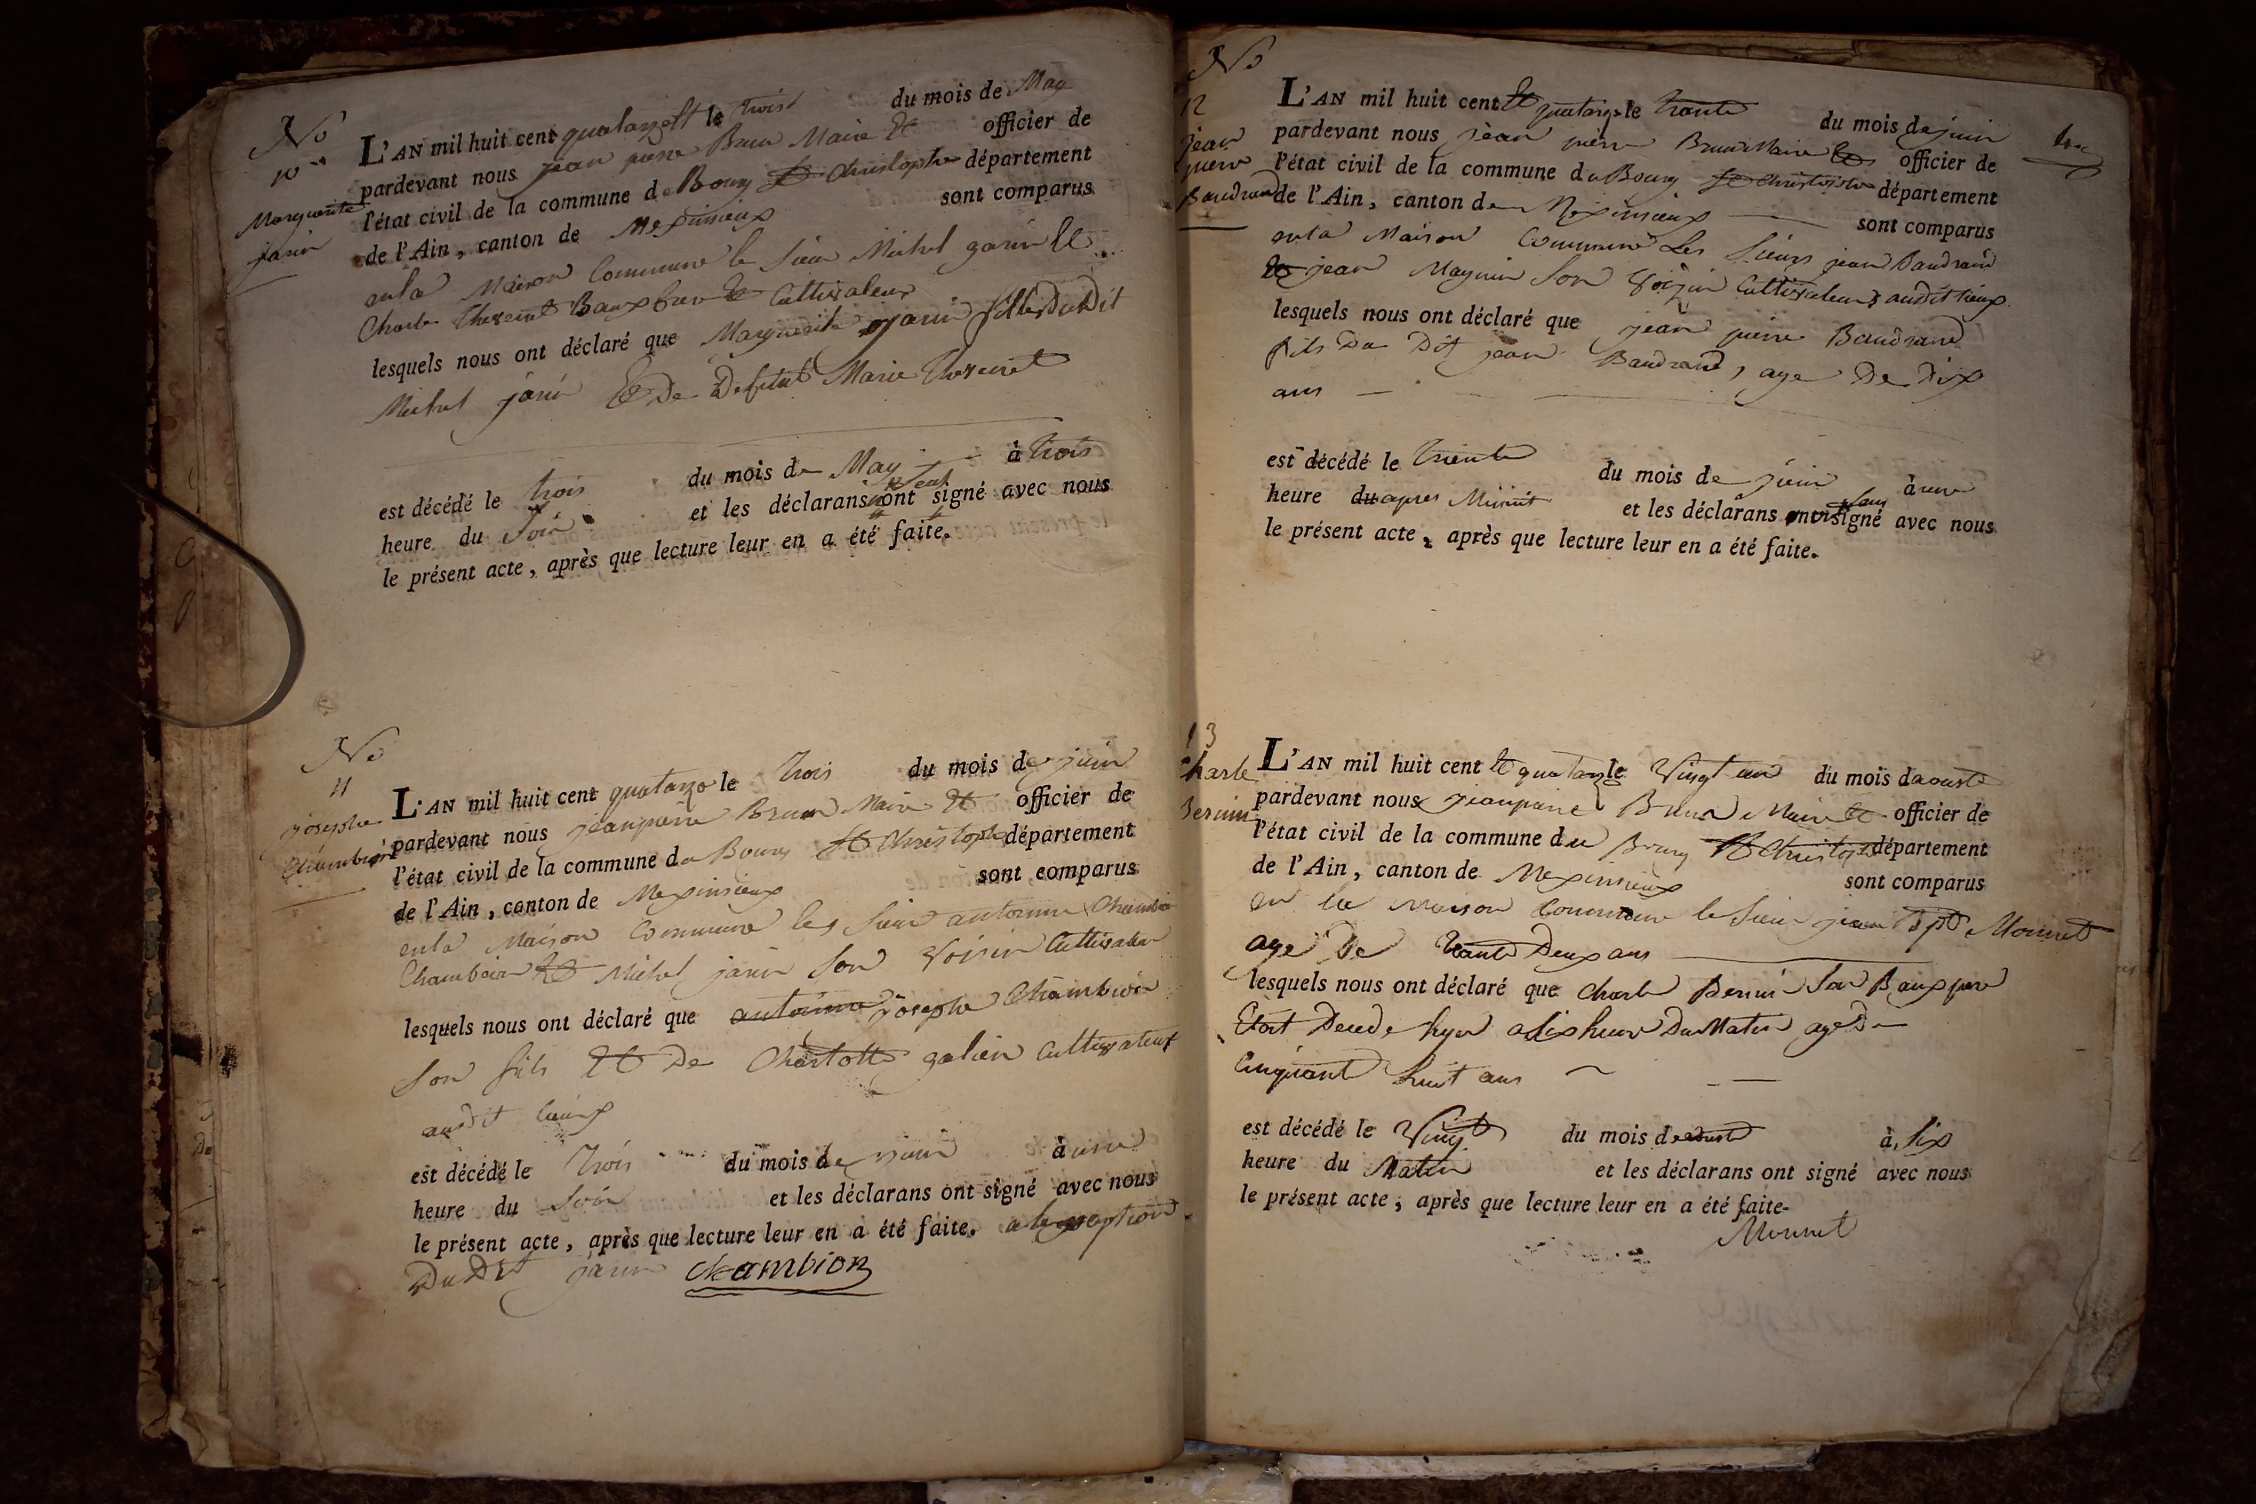 No
10
Marguerite
janin
L'AN mil huit cent quatorze le trois du mois de May
pardevant nous jean pierre Brun Maire et officier de
l'état civil de la commune de Bourg St Christophe département
de l'Ain, canton de Meximieux sont comparus
en la Maison Commune le sieur Michel janin et
Charle Thevenet Baux frer et Cultivateur
lesquels nous ont déclaré que Marguerite janin fille du dit
Michel janin et De Defunt Marie Thevenet
est décédé le trois du mois de May à trois
heure du soir et les déclarans n'ont signé avec nous
le présent acte, après que lecture leur en a été faite.
No
11
josephe
Chambion
L'AN mil huit cent quatorze le trois du mois de juin
pardevant nous jean pierre Brun Maire et officier de
l'état civil de la commune de Bourg St Christophe département
de l'Ain, canton de Meximieux sont comparus
en la Maison Commune les sieur antoinne
Chambion et Michel janin son voisin Cultivateur
lesquels nous ont déclaré que antoinne josephe Chambion
son fils et De Charlotte galien Cultivateur
audit lieux
est décédé le trois du mois de juin à une
heure du soir et les déclarans ont signé avec nous
le présent acte, après que lecture leur en a été faite. a la
Du Dit janin Chambion
No
12
jean
pierre
Baudrand
L'AN mil huit cent et quatorze le trante du mois de juin
pardevant nous jean pierre Brun Maire et officier de
l'état civil de la commune de Bourg St Christophe département
de l'Ain, canton de Meximieux sont comparus
en la Maison Commune Les sieurs jean Baudrand
et jean Magnin son voizin Cultivateurs audit lieux
lesquels nous ont déclaré que jean pierre Baudrand
fils Du Dit jean Baudrand, age De Dix
ans
est décédé le trente du mois de juin à une
heure du apres Minuit et les déclarans ont signé avec nous
le présent acte, après que lecture leur en a été faite.
13
Charle
Bernin
L'AN mil huit cent et quatorze le Vingt un du mois daouste
pardevant nous jean pierre Brun Maire et officier de
l'état civil de la commune du Bourg St Christophe département
de l'Ain, canton de Meximieux sont comparus
en la Maison Commune le sieur jean Bpt Monnet
age De trante Deux ans
lesquels nous ont déclaré que Charle Bernin son Baux pere
Etoit Decede hyer a six heure Du Matin age De
Cinquant huit ans
est décédé le Vingt du mois daouste à six
heure du Matin et les déclarans ont signé avec nous
le présent acte, après que lecture leur en a été faite.
Monnet